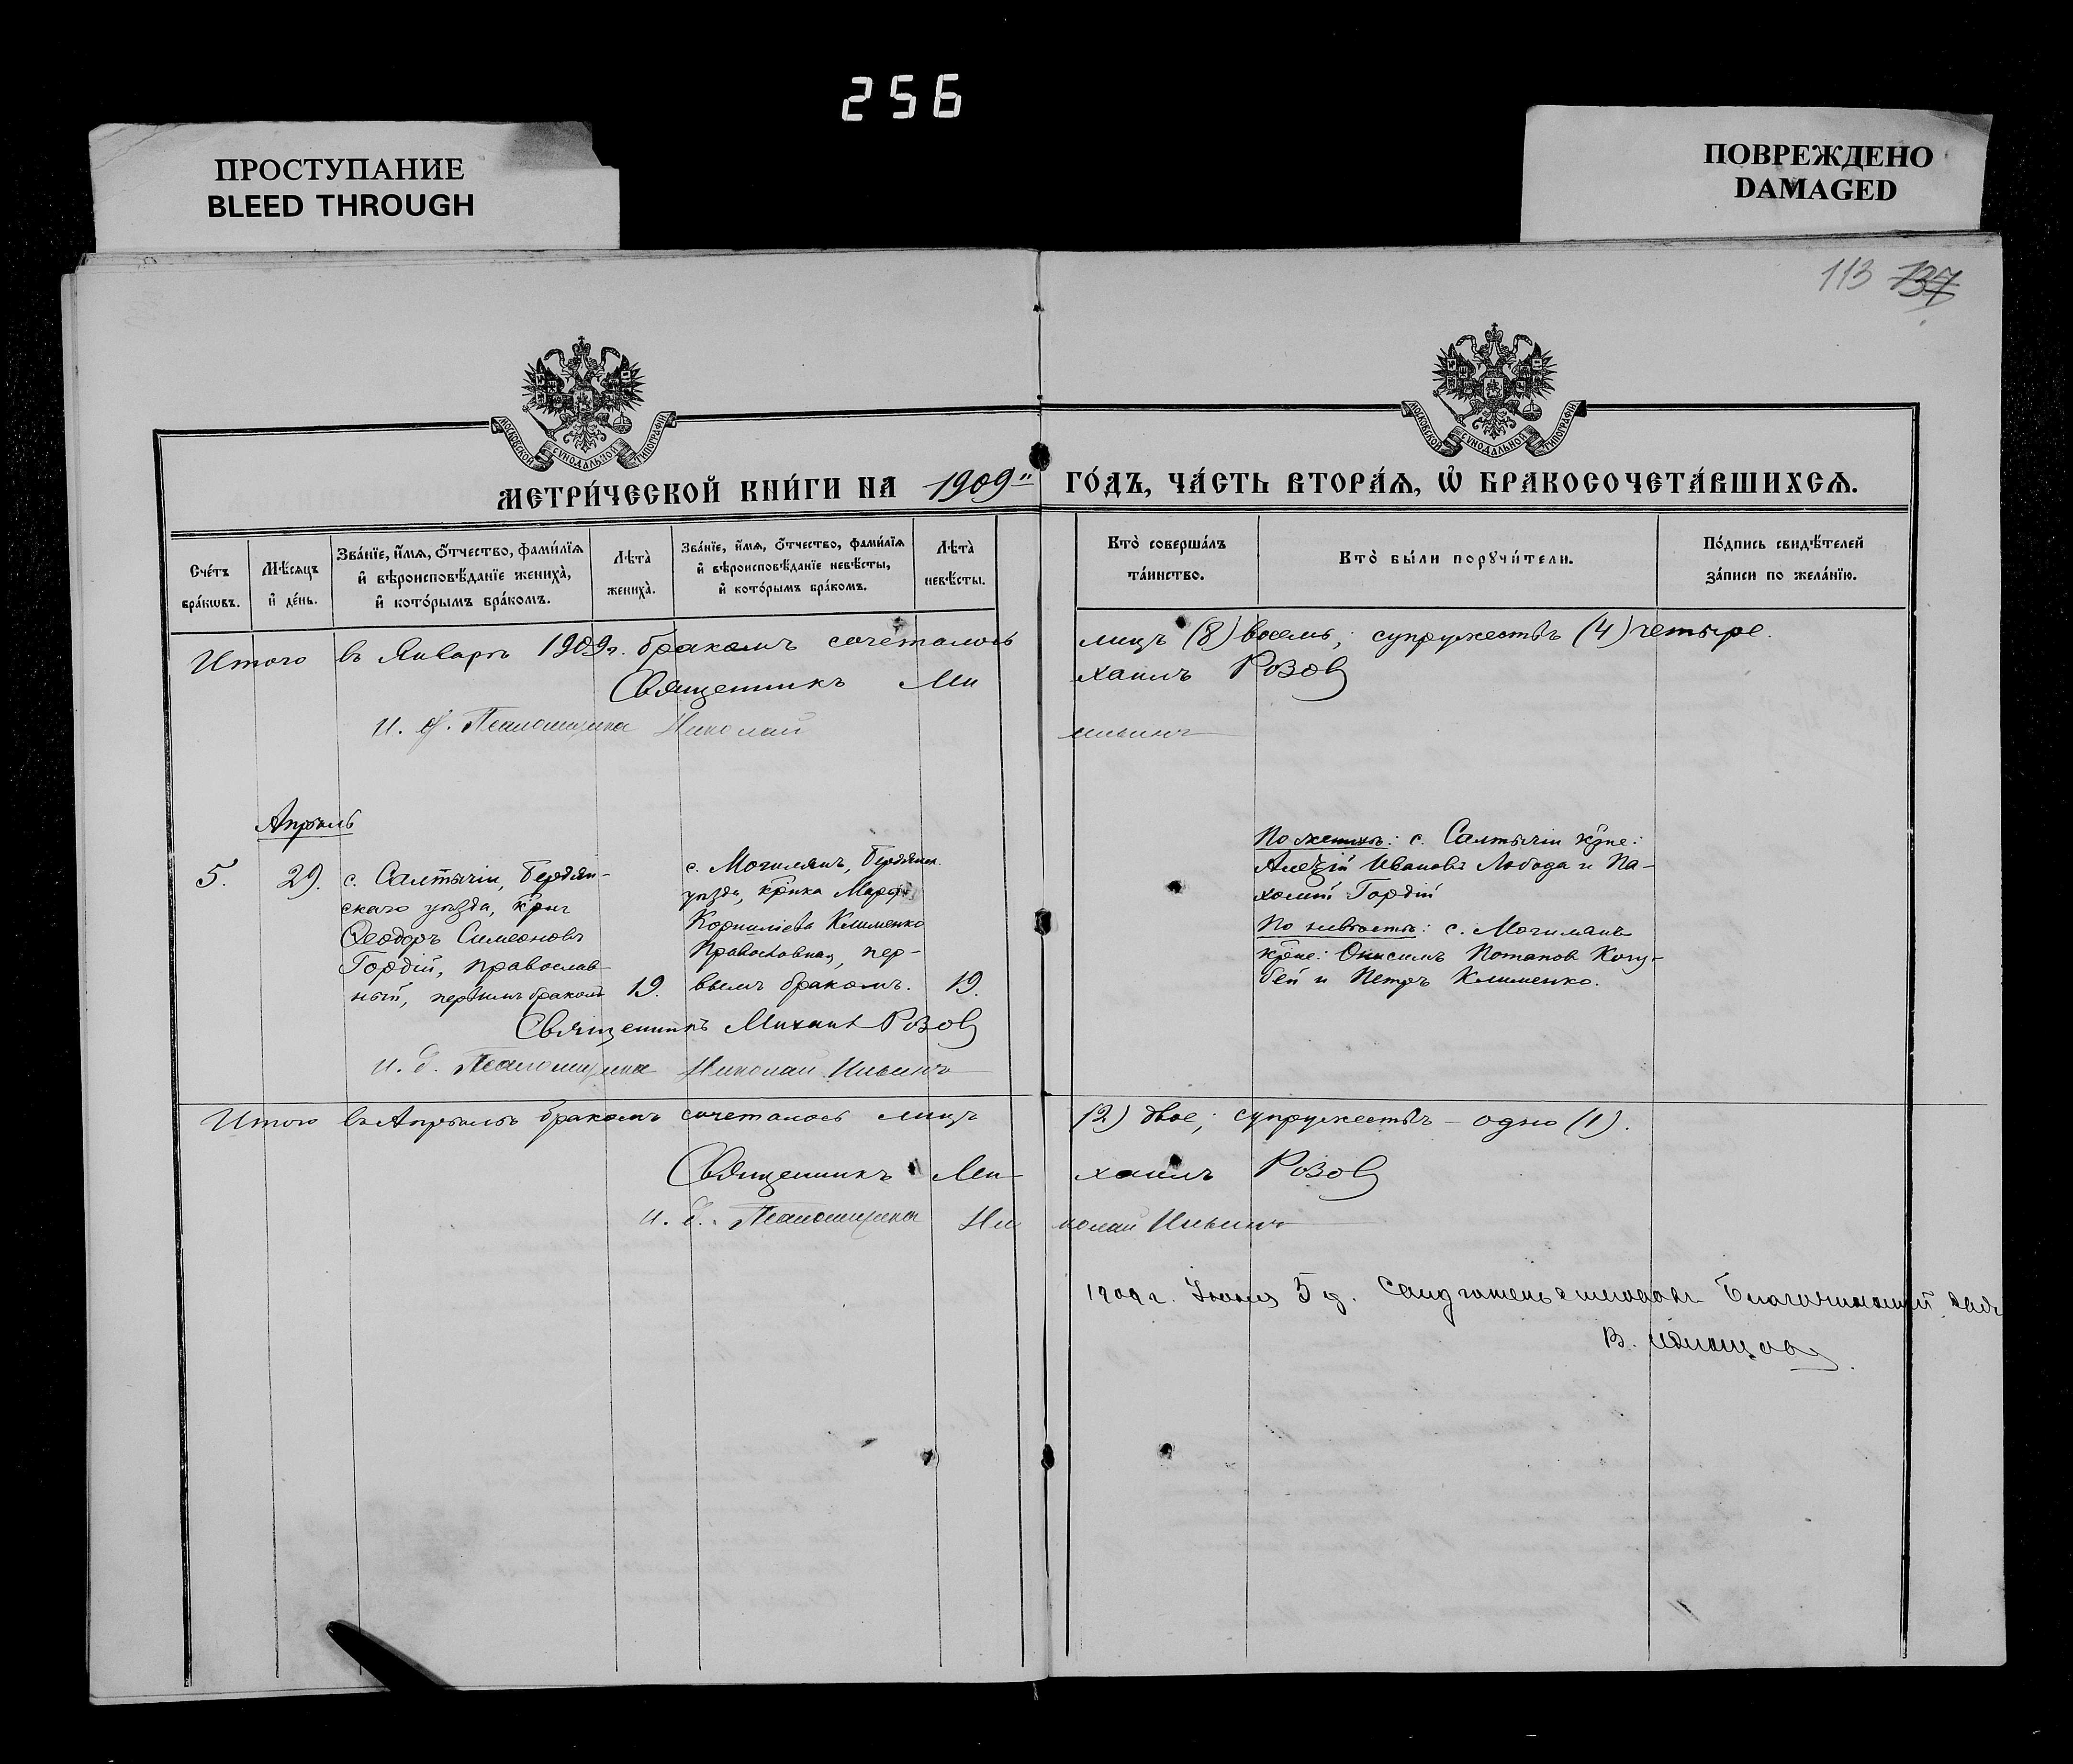 256
ПРОСТУПАНИЕ
BLEED THROUGH
ПОВРЕЖДЕНО
DAMAGED
113 137
МОСКОВСКОЙ СУНОДАЛЬНОЙ ТИПОГРАФІИ
МОСКОВСКОЙ СУНОДАЛЬНОЙ ТИПОГРАФІИ
МЕТРИ́ЧЕСКОЙ КНИ́ГИ НА 1909й ГО́ДЪ, ЧА́СТЬ ВТОРА́Ѧ, Ѡ҆ БРАКОСОЧЕТА́ВШИХСѦ.
Сче́тъ бра́кѡвъ.
Мѣ́сѧцъ и҆ де́нь.
Зва́нїе, и҆́мѧ, ѻ҆́тчество, фами́лїѧ и҆ вѣроисповѣ́данїе жениха̀, и҆ кото́рымъ бра́комъ.
Лѣта̀ жениха̀.
Зва́нїе, и҆́мѧ, ѻ҆́тчество, фами́лїѧ и҆ вѣроисповѣ́данїе невѣ́сты, и҆ кото́рымъ бра́комъ.
Лѣта̀ невѣ́сты.
Кто̀ соверша́лъ та́инство.
Кто̀ бы́ли порꙋчи́тели.
По́дпись свидѣ́телей за́писи по жела́нїю.
Итого въ Январѣ 1909 г. бракомъ сочеталось лицъ (8) восемь; супружествъ (4) четыре.
Священникъ Михаилъ Розовъ
И. д. Псаломщика Николай Ильинъ
Апрѣль
5.
29.
с. Салтычіи, Бердян-
скаго уѣзда, кр̃нъ
Ѳеодоръ Симеоновъ
Гордій, православ-
ный, первымъ бракомъ
19.
с. Могилянъ, Бердянск.
уѣзда, кр̃нка Марфа
Корниліева Клименко
Православная, пер-
вымъ бракомъ.
19.
По женихѣ: с. Салтычіи кр̃не:
Алексій Ивановъ Лобода и Па-
хомій Гордій
По невѣстѣ: с. Могилянъ
кр̃не: Онисимъ Потаповъ Кочу-
бей и Петръ Клименко.
Священникъ Михаилъ Розовъ
И. д. Псаломщика Николай Ильинъ
Итого въ Апрѣлѣ бракомъ сочеталось лицъ (2) двое; супружествъ – одно (1).
Священникъ Михаилъ Розовъ
И. д. Псаломщика Николай Ильинъ
1909 г. 5 д. Благочинный
В.